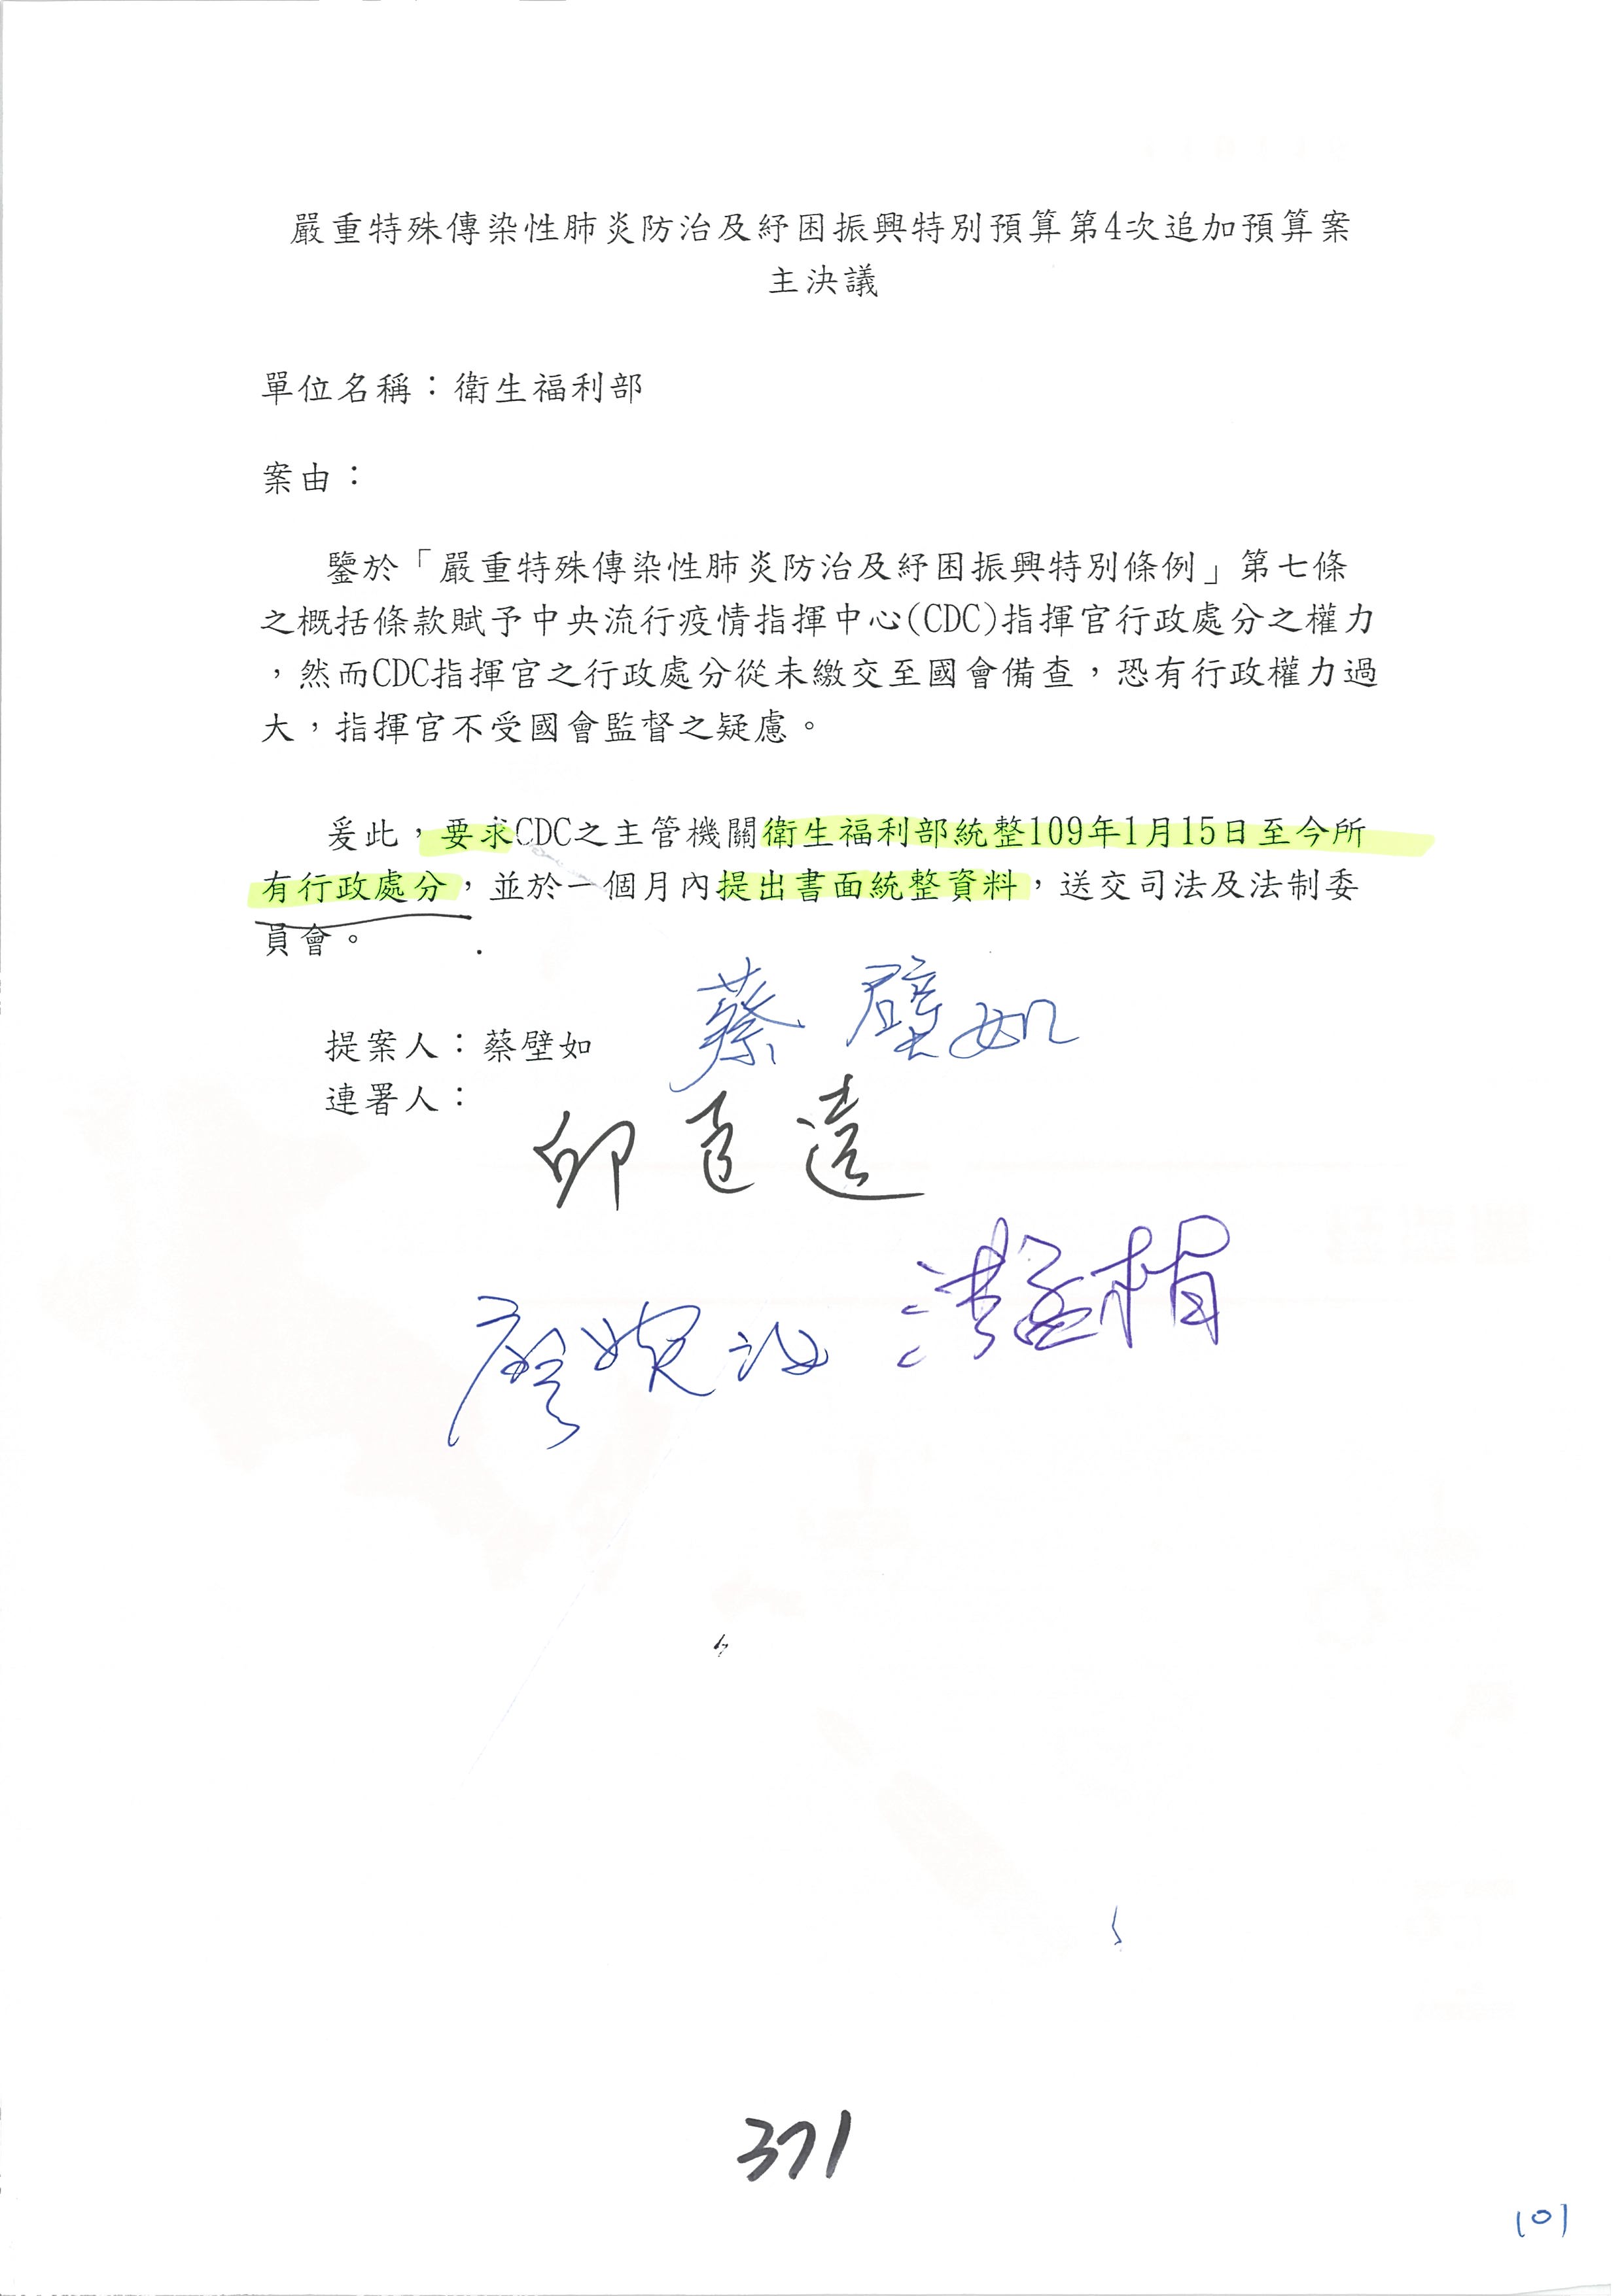 嚴重特殊傳染性肺炎防治及紓困振興特別預算第4次追加預算案
主決議
單位名稱：衛生福利部
案由：
鑒於「嚴重特殊傳染性肺炎防治及紓困振興特別條例」第七條
之概括條款賦予中央流行疫情指揮中心(CDC)指揮官行政處分之權力
，然而CDC指揮官之行政處分從未繳交至國會備查，恐有行政權力過
大，指揮官不受國會監督之疑慮。
爰此，要求CDC之主管機關衛生福利部統整109年1月15日至今所
有行政處分，並於一個月內提出書面統整資料，送交司法及法制委
員會。
提案人：蔡壁如 蔡壁如
連署人：
邱臣遠
371
101